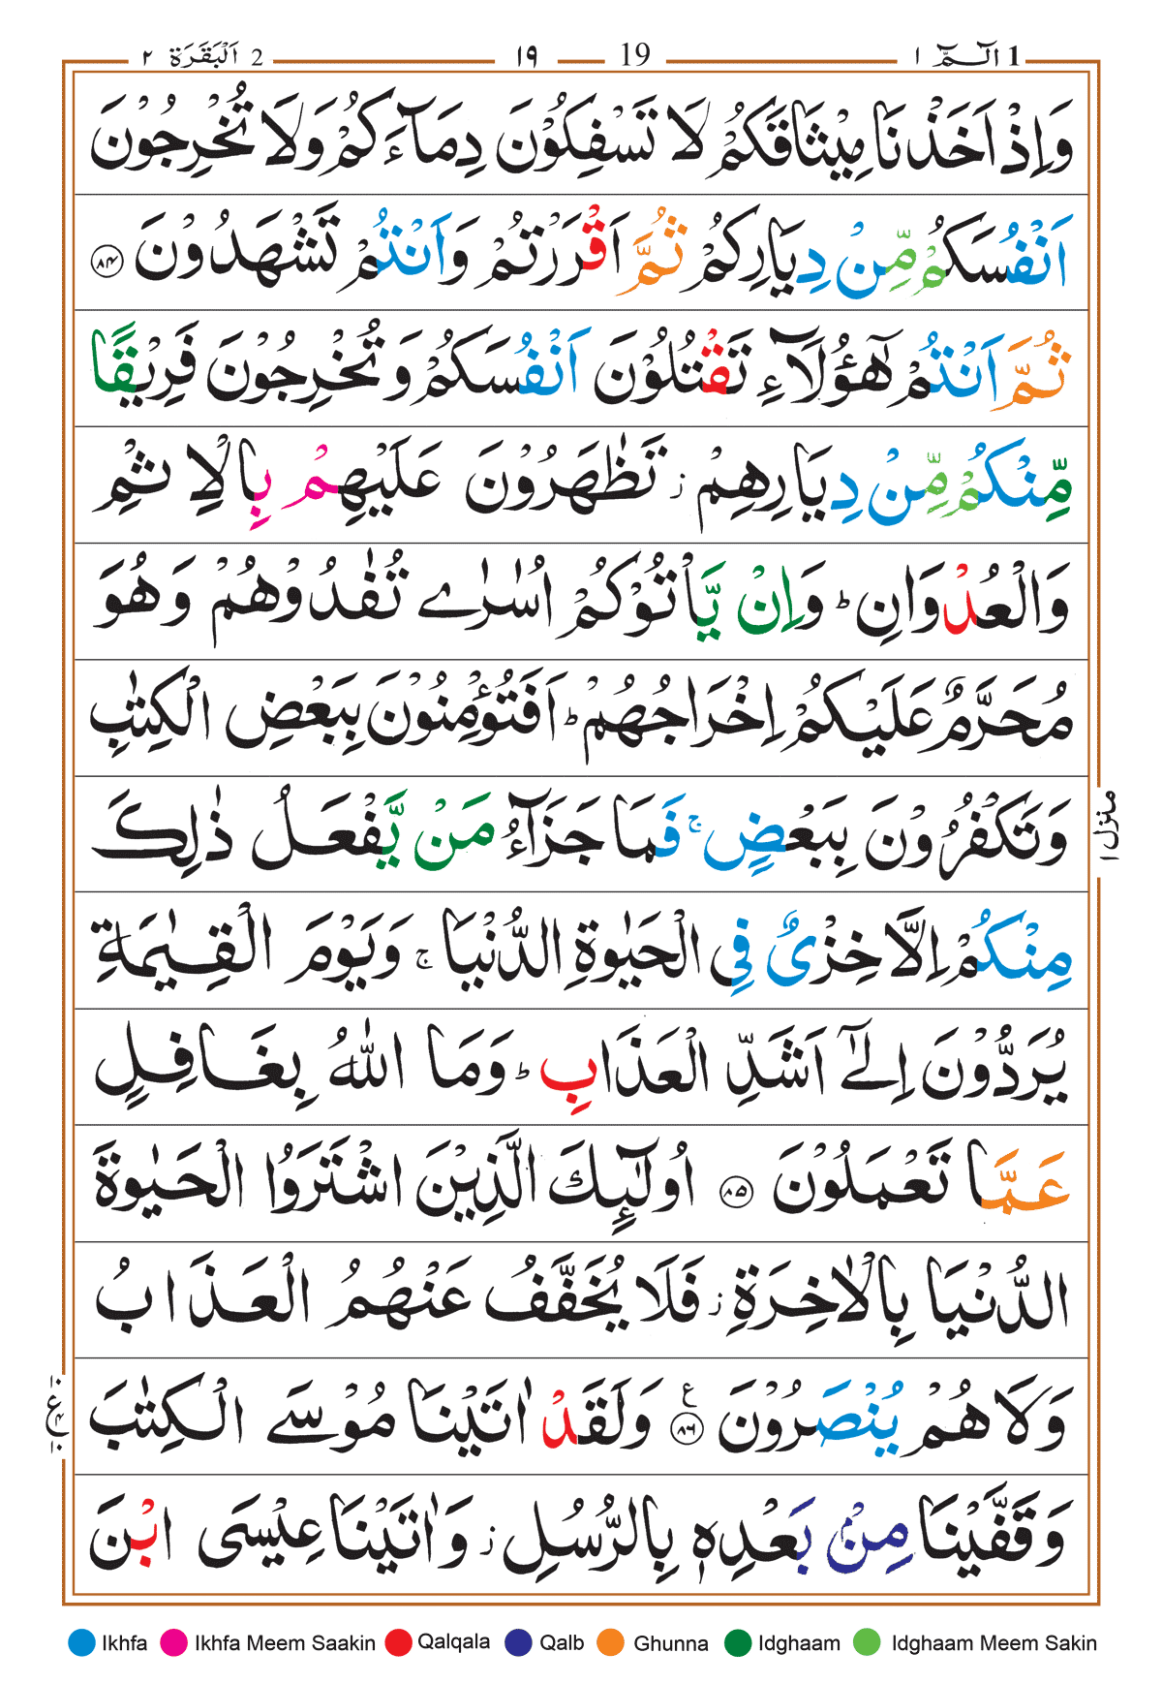 1 الٓـمّٓ ١ 19 ١٩ 2 اَلْبَقَرَة ٢
وَاِذْ اَخَذْنَا مِيْثَاقَكُمْ لَا تَسْفِكُوْنَ دِمَآءَكُمْ وَلَا تُخْرِجُوْنَ
اَنْفُسَكُمْ مِّنْ دِيَارِكُمْ ثُمَّ اَقْرَرْتُمْ وَاَنْتُمْ تَشْهَدُوْنَ ۝٨٤
ثُمَّ اَنْتُمْ هٰٓؤُلَآءِ تَقْتُلُوْنَ اَنْفُسَكُمْ وَتُخْرِجُوْنَ فَرِيْقًا
مِّنْكُمْ مِّنْ دِيَارِهِمْ ز تَظٰهَرُوْنَ عَلَيْهِمْ بِالْاِثْمِ
وَالْعُدْوَانِ ؕ وَاِنْ يَّاْتُوْكُمْ اُسٰرٰے تُفٰدُوْهُمْ وَهُوَ
مُحَرَّمٌ عَلَيْكُمْ اِخْرَاجُهُمْ ؕ اَفَتُؤْمِنُوْنَ بِبَعْضِ الْكِتٰبِ
وَتَكْفُرُوْنَ بِبَعْضٍ ۚ فَمَا جَزَآءُ مَنْ يَّفْعَلُ ذٰلِكَ
مِنْكُمْ اِلَّا خِزْىٌ فِى الْحَيٰوةِ الدُّنْيَا ۚ وَيَوْمَ الْقِيٰمَةِ
يُرَدُّوْنَ اِلٰٓے اَشَدِّ الْعَذَابِ ؕ وَمَا اللّٰهُ بِغَافِلٍ
عَمَّا تَعْمَلُوْنَ ۝٨٥ اُولٰٓئِكَ الَّذِيْنَ اشْتَرَوُا الْحَيٰوةَ
الدُّنْيَا بِالْاٰخِرَةِ ز فَلَا يُخَفَّفُ عَنْهُمُ الْعَذَابُ
وَلَا هُمْ يُنْصَرُوْنَ ۝٨٦ ع وَلَقَدْ اٰتَيْنَا مُوْسَے الْكِتٰبَ
وَقَفَّيْنَا مِنْۢ بَعْدِهٖ بِالرُّسُلِ ز وَاٰتَيْنَا عِيْسَى ابْنَ
منزل ١
Ikhfa Ikhfa Meem Saakin Qalqala Qalb Ghunna Idghaam Idghaam Meem Sakin